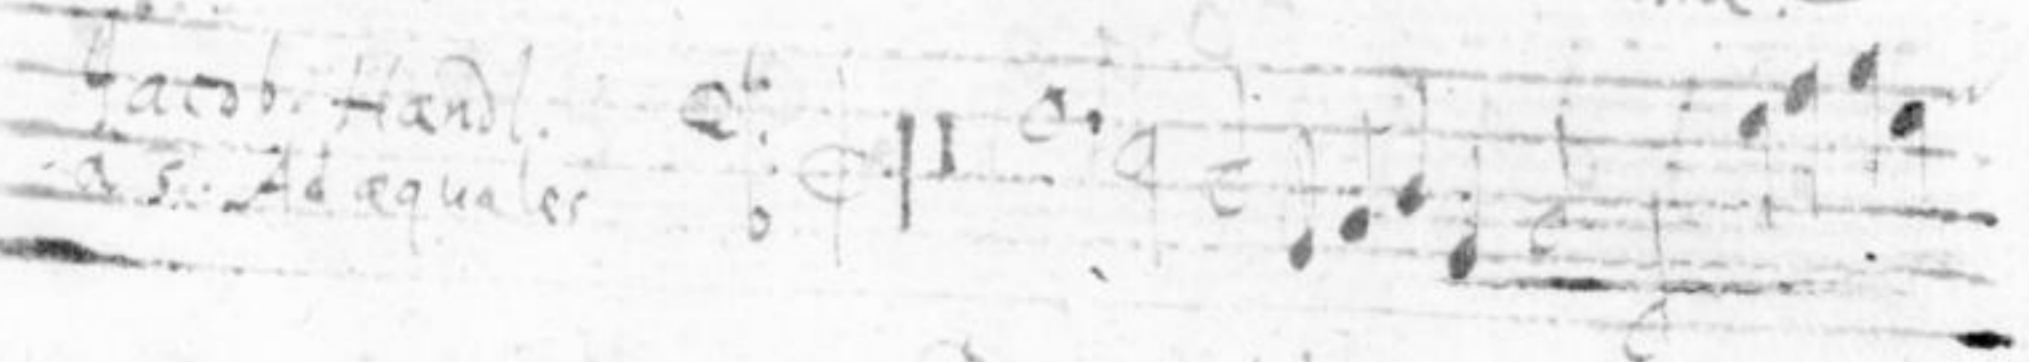 Jacob. Handl.
a 5. Ad æquales